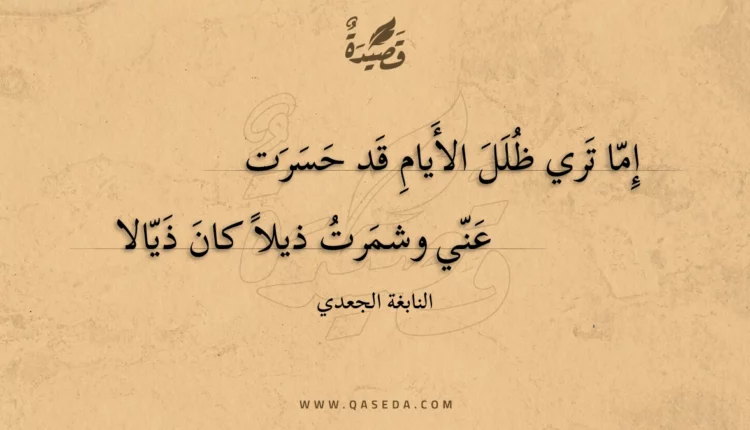 قَصِيدَةٌ
إِمّا تَري ظُلَلَ الأَيامِ قَد حَسَرَت
عَنّي وشمَرتُ ذيلاً كانَ ذَيّالا
النابغة الجعدي
WWW.QASEDA.COM